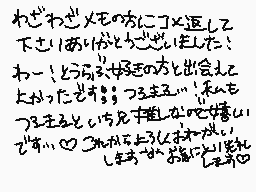 わざわざメモの方にコメ返して
下さりありがとうございました!
わー!とうらぶ好きの方と出会えて
よかったです!!つるまる…!私も
つるまると いち兄推しなので嬉しい
です…♡これからよろしくおねがい
します お気に入り失礼
します♡